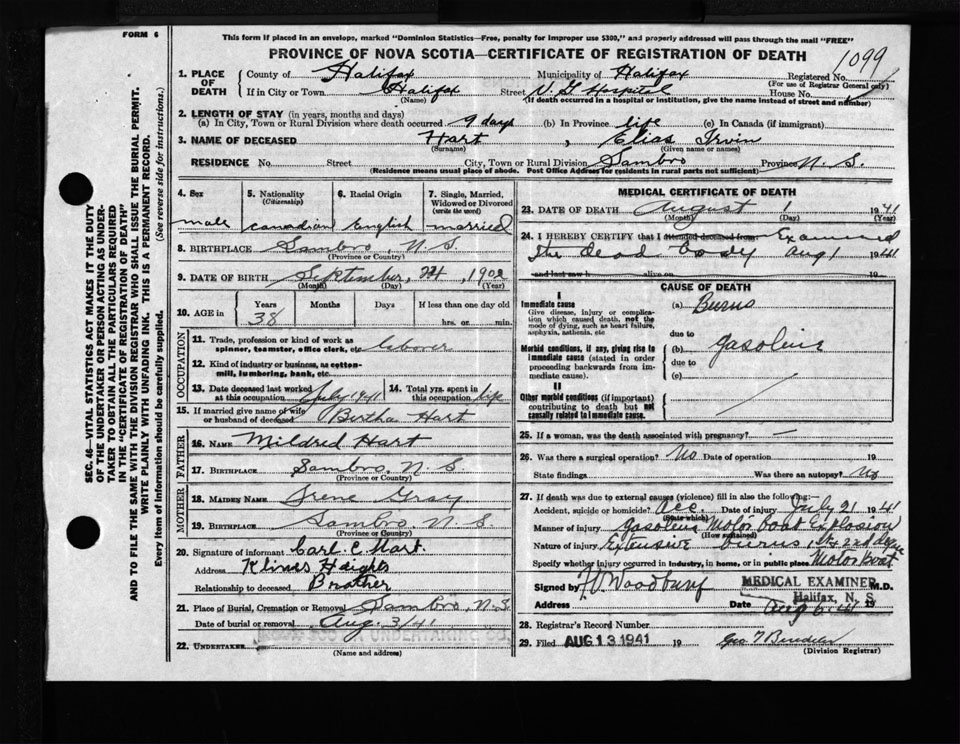 FORM 6
This form if placed in an envelope, marked "Dominion Statistics—Free, penalty for improper use $300," and properly addressed will pass through the mail "FREE"
PROVINCE OF NOVA SCOTIA—CERTIFICATE OF REGISTRATION OF DEATH
1099
1. PLACE OF DEATH County of Halifax Municipality of Halifax Registered No.
(For use of Registrar General only)
If in City or Town Halifax Street V. G Hospital House No.
(Name) (If death occurred in a hospital or institution, give the name instead of street and number)
2. LENGTH OF STAY (in years, months and days)
(a) In City, Town or Rural Division where death occurred 9 days (b) In Province life (c) In Canada (if immigrant)
3. NAME OF DECEASED Hart, Elias Irvin
(Surname) (Given name or names)
RESIDENCE No. Street City, Town or Rural Division Sambro Province N. S.
(Residence means usual place of abode. Post Office Address for residents in rural parts not sufficient)
4. Sex 5. Nationality (Citizenship) 6. Racial Origin 7. Single, Married, Widowed or Divorced (write the word)
male Canadian English married
8. BIRTHPLACE Sambro, N. S.
(Province or Country)
9. DATE OF BIRTH September, 24, 1902
(Month) (Day) (Year)
10. AGE in Years Months Days If less than one day
38 hrs. or min.
OCCUPATION
11. Trade, profession or kind of work as spinner, teamster, office clerk, etc. laborer
12. Kind of industry or business, as cotton-mill, lumbering, bank, etc.
13. Date deceased last worked at this occupation July 1941 14. Total yrs. spent in this occupation life
15. If married give name of wife or husband of deceased Bertha Hart
FATHER
16. NAME Mildred Hart
17. BIRTHPLACE Sambro, N. S.
(Province or Country)
MOTHER
18. MAIDEN NAME Irene Gray
19. BIRTHPLACE Sambro, N. S
(Province or Country)
20. Signature of informant Carl C Hart.
Address Klines Heights
Relationship to deceased Brother
21. Place of Burial, Cremation or Removal Sambro, N. S.
Date of burial or removal Aug. 3/41
22. UNDERTAKER
UNDERTAKING CO.
(Name and address)
MEDICAL CERTIFICATE OF DEATH
23. DATE OF DEATH August 1 1941
(Month) (Day) (Year)
24. I HEREBY CERTIFY that I attended deceased from Examined
the dead body Aug 1 1941
and last saw h alive on 19
CAUSE OF DEATH
I
Immediate cause (a) Burns
Give disease, injury or complication which caused death, not the mode of dying, such as heart failure, asphyxia, asthenia, etc
due to
Morbid conditions, if any, giving rise to immediate cause (stated in order proceeding backwards from immediate cause). (b) gasoline
due to
(c)
II
Other morbid conditions (if important) contributing to death but not causally related to immediate cause.
25. If a woman, was the death associated with pregnancy? —
26. Was there a surgical operation? No Date of operation
State findings Was there an autopsy? No
27. If death was due to external causes (violence) fill in also the following:
Accident, suicide or homicide? Acc. Date of injury July 21 1941
(State which)
Manner of injury gasoline Motor boat Explosion
(How sustained)
Nature of injury Extensive burns, 1st & 2nd degree
Specify whether injury occurred in industry, in home, or in public place Motor Boat
Signed by Woodbury M.D.
MEDICAL EXAMINER
Halifax, N. S.
Address Date Aug 6. 41 19
28. Registrar's Record Number
29. Filed AUG 13 1941 19
(Division Registrar)
SEC. 46—VITAL STATISTICS ACT MAKES IT THE DUTY
OF THE UNDERTAKER OR PERSON ACTING AS UNDER-
TAKER TO OBTAIN ALL THE PARTICULARS REQUIRED
IN THE "CERTIFICATE OF REGISTRATION OF DEATH"
AND TO FILE THE SAME WITH THE DIVISION REGISTRAR WHO SHALL ISSUE THE BURIAL PERMIT.
WRITE PLAINLY WITH UNFADING INK. THIS IS A PERMANENT RECORD.
Every item of information should be carefully supplied. (See reverse side for instructions.)